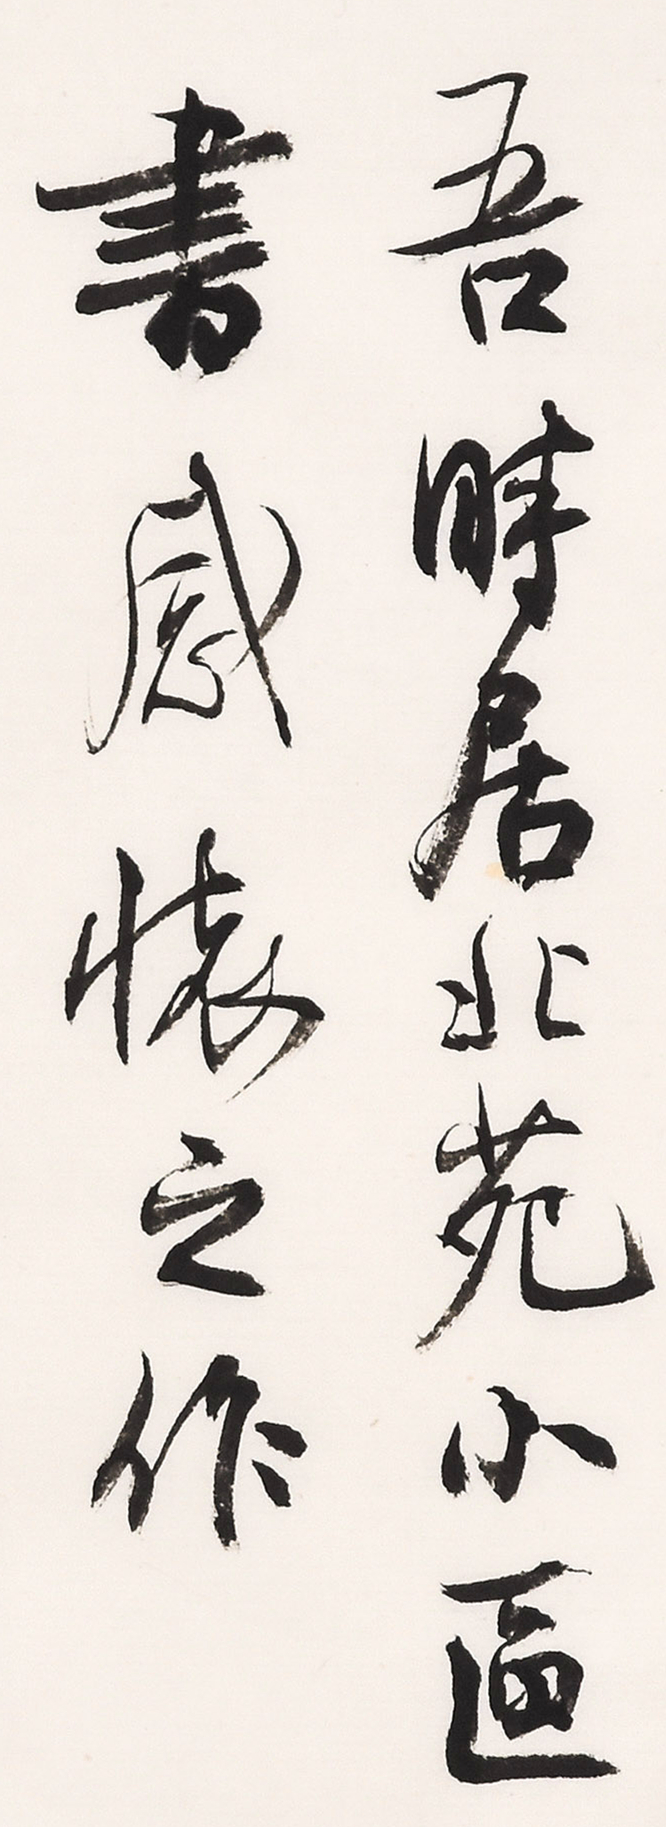 吾時居北苑小區
書感懷之作